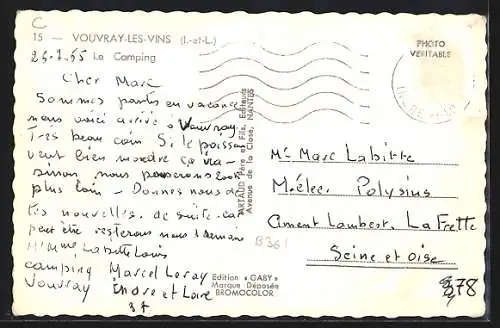 C
15 — VOUVRAY-LES-VINS (I.-et-L.)
Le Camping
PHOTO
VERITABLE
Cher Marc
Sommes partis en vacance
nous voici arrivé à Vouvray
Tres beau coin Si le poisson
veut bien mordre ça ira -
sinon nous pousserons
plus loin - Donnes nous de
tes nouvelles de suite car
peut être resterons nous 1 semaine
Labitte Louis
camping Marcel Leray
Vouvray Indre et Loire
37
ARTAUD Père et Fils, Editeurs
Avenue de la Close, NANTES
Mr Marc Labitte
Polysius
Ciment Lambert. La Frette
Seine et Oise
B361
Edition « GABY »
Marque Déposée
BROMOCOLOR
878